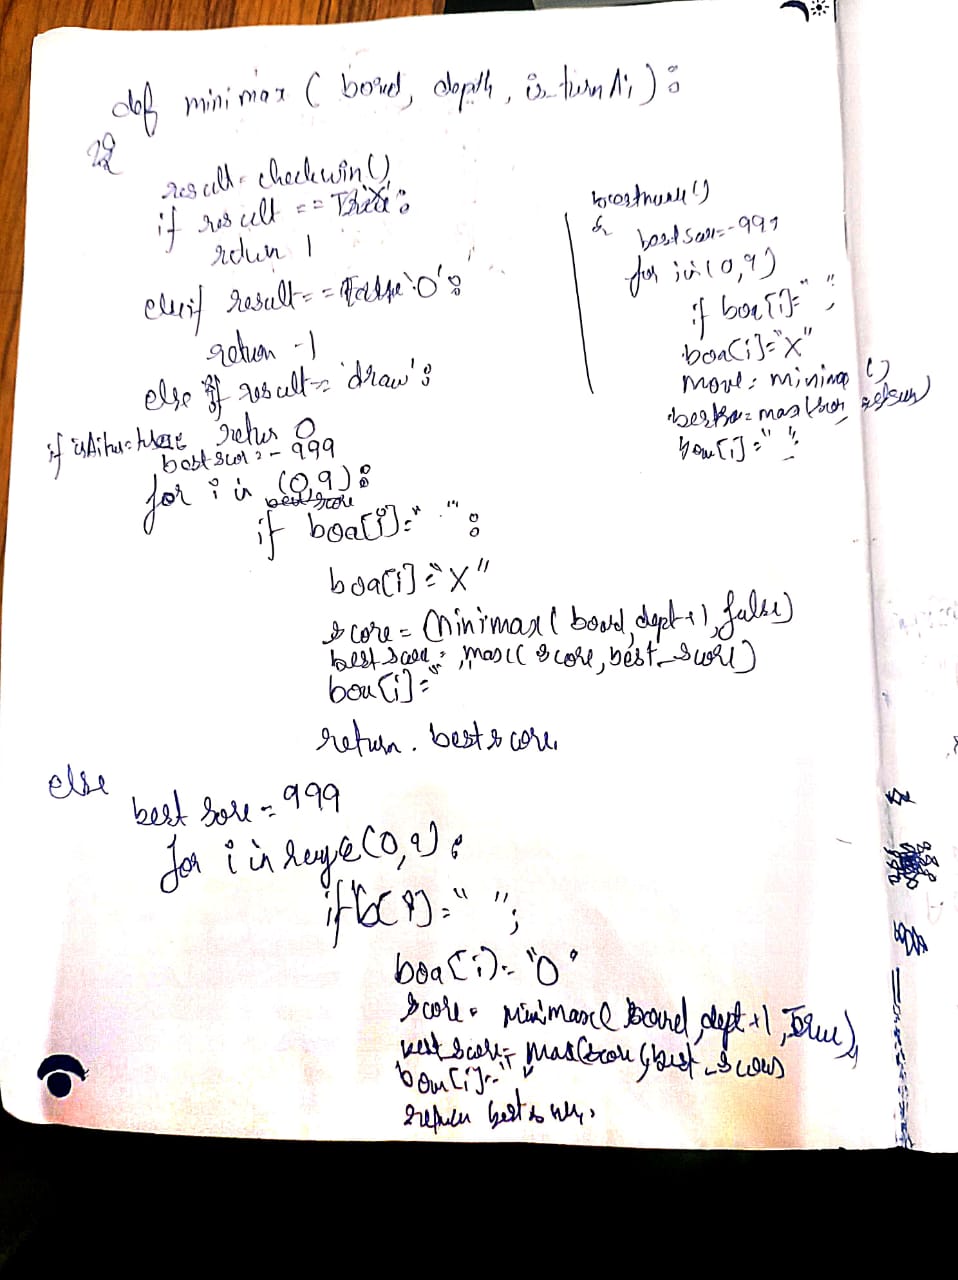 def minimax ( board, depth, is_turn Ai ) :
result = checkwin ()
if result == 'X' :
return 1
elseif result == 'O' :
return -1
else if result = 'draw' :
return 0
if isAitur= true
best scor = - 999
for i in (0,9) :
if boa[i]=" " :
boa[i] = "X"
score = Minimax ( board, dept+1, false)
best score = max(( score, best_score)
boa[i]=" "
return . best score.
else
best sore = 999
for i in range (0,9) :
if b[i]=" " ;
boa[i]= "O"
score = minimax( board, dept +1, True)
best score = max(score, best_score)
boa[i]=" "
return best score.
bestmove()
best score=-999
for i in (0,9)
if boa[i]=" " ;
boa[i]="X"
move = minimax ()
bestsco= max(scor
boa[i]=" " ;